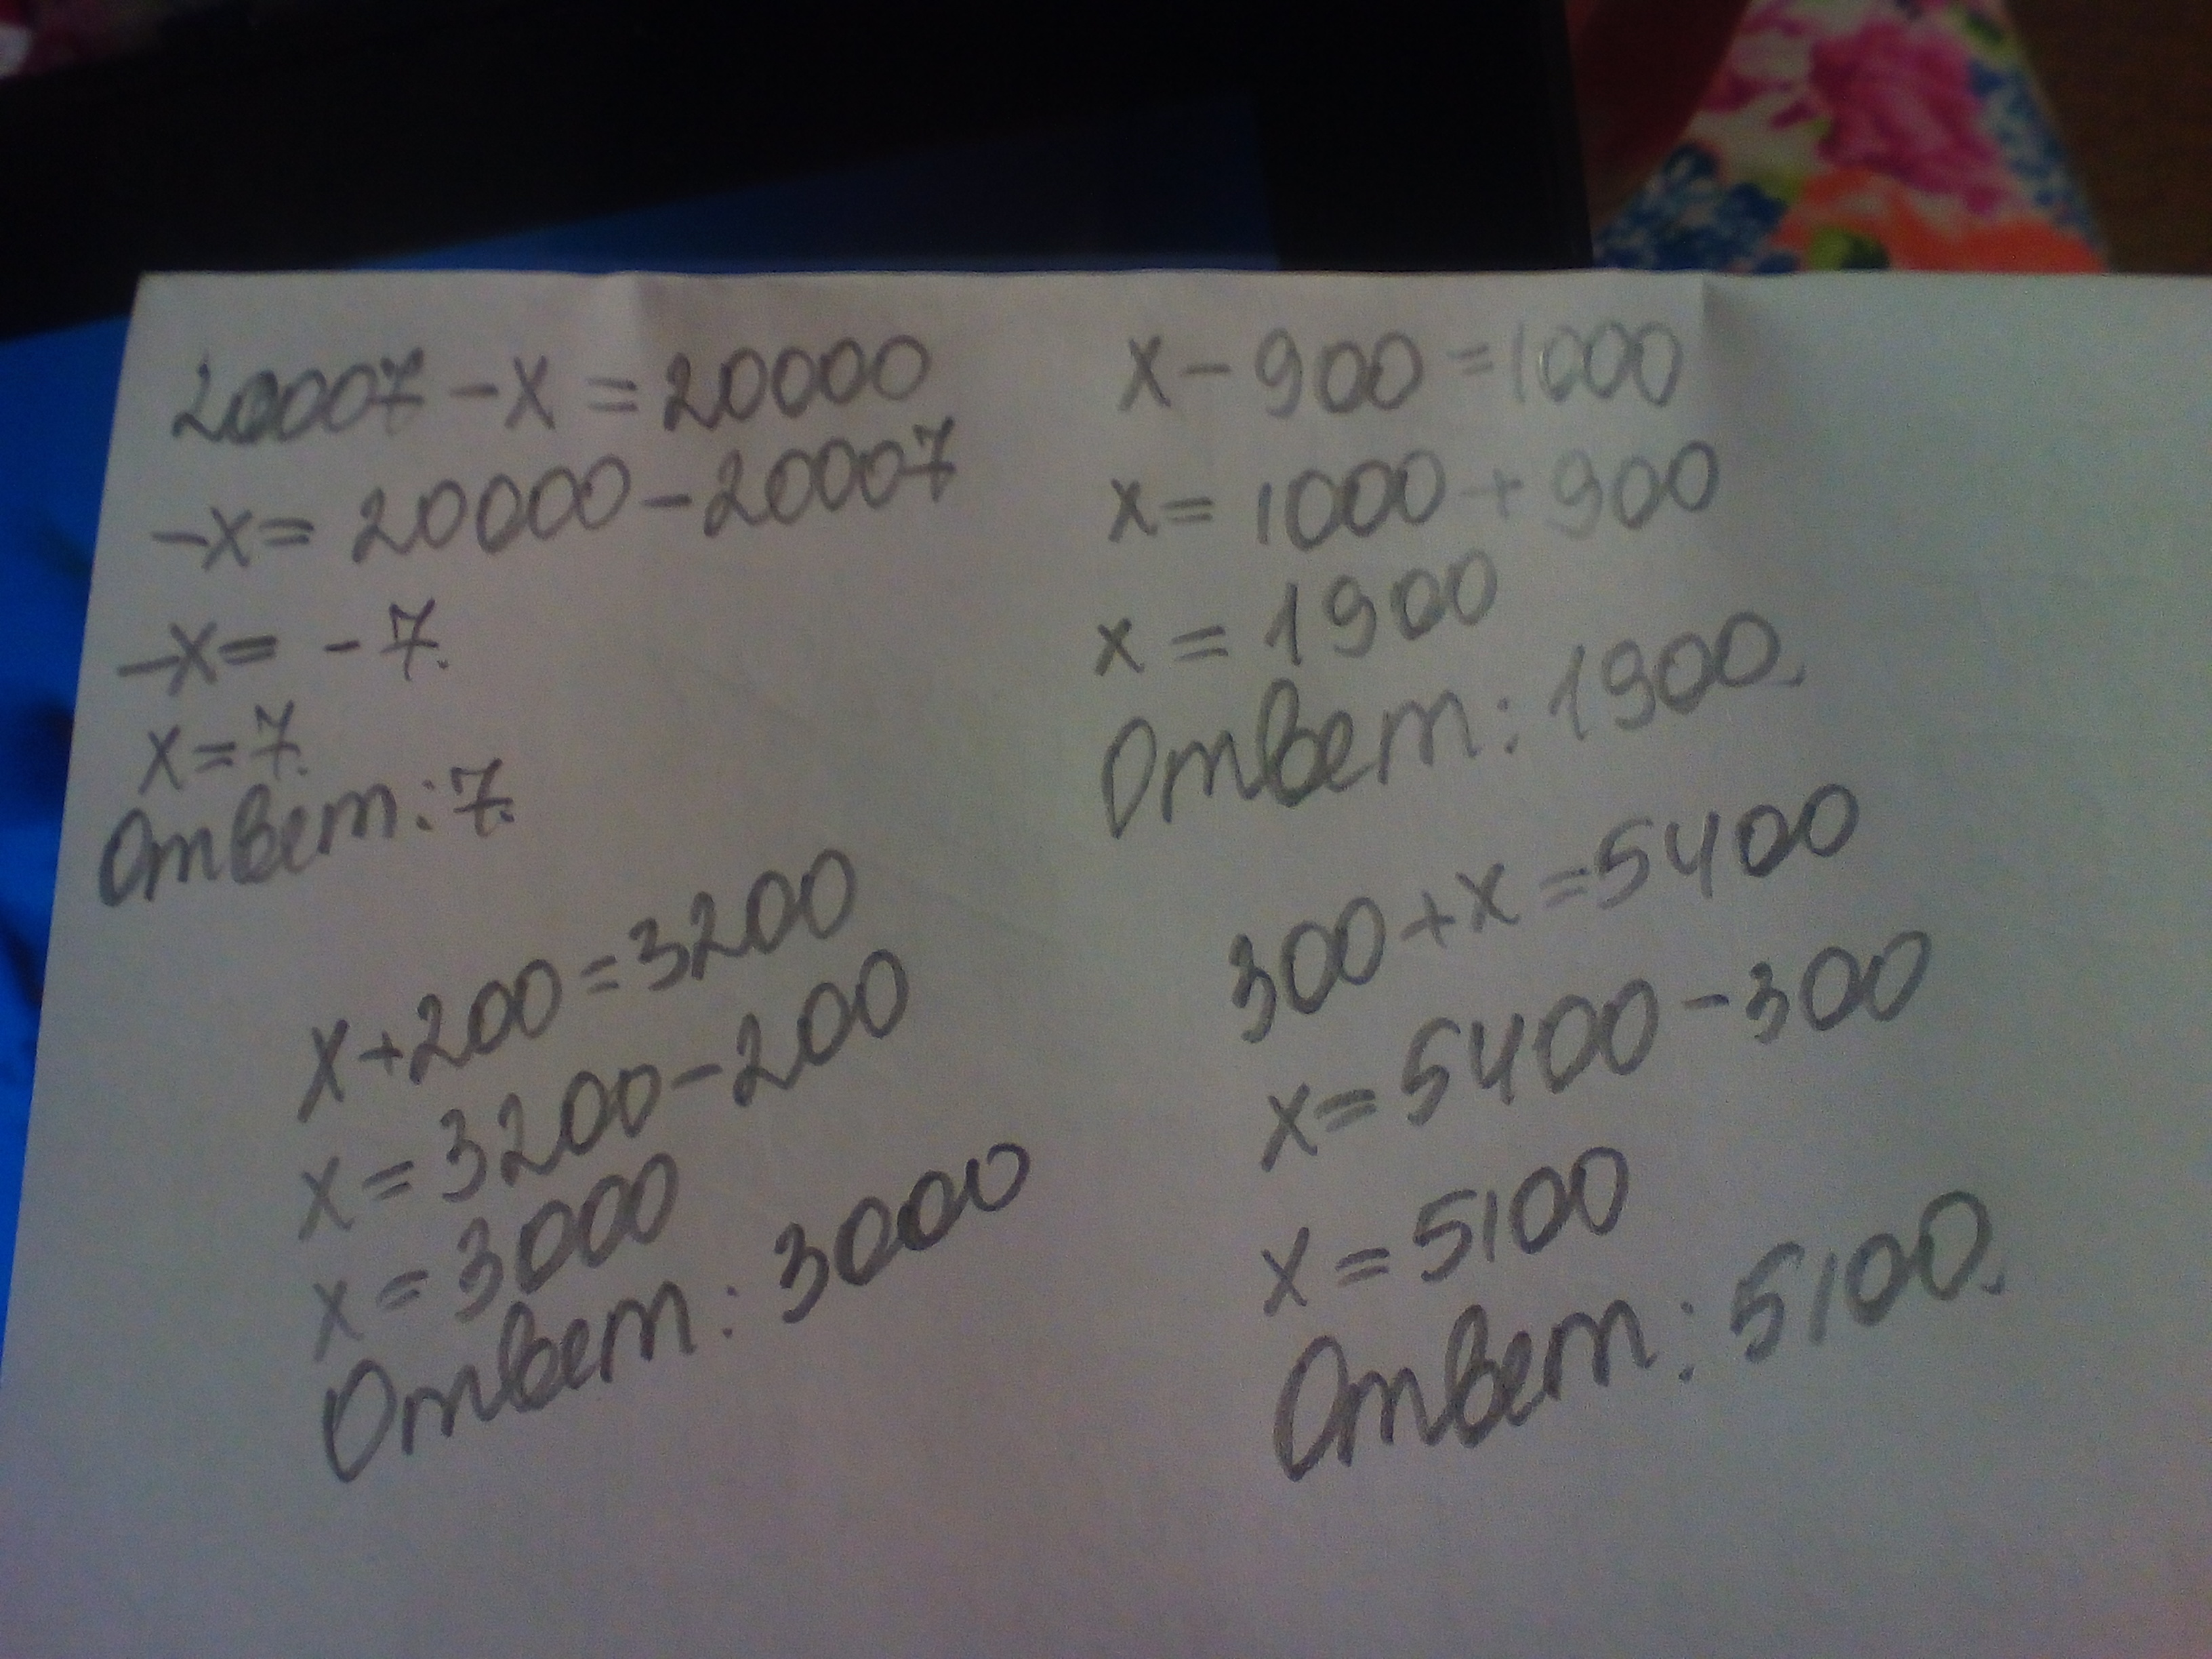 20007 - x = 20000
-x = 20000 - 20007
-x = - 7.
x = 7.
Ответ: 7.
x - 900 = 1000
x = 1000 + 900
x = 1900
Ответ: 1900.
x + 200 = 3200
x = 3200 - 200
x = 3000
Ответ: 3000
300 + x = 5400
x = 5400 - 300
x = 5100
Ответ: 5100.